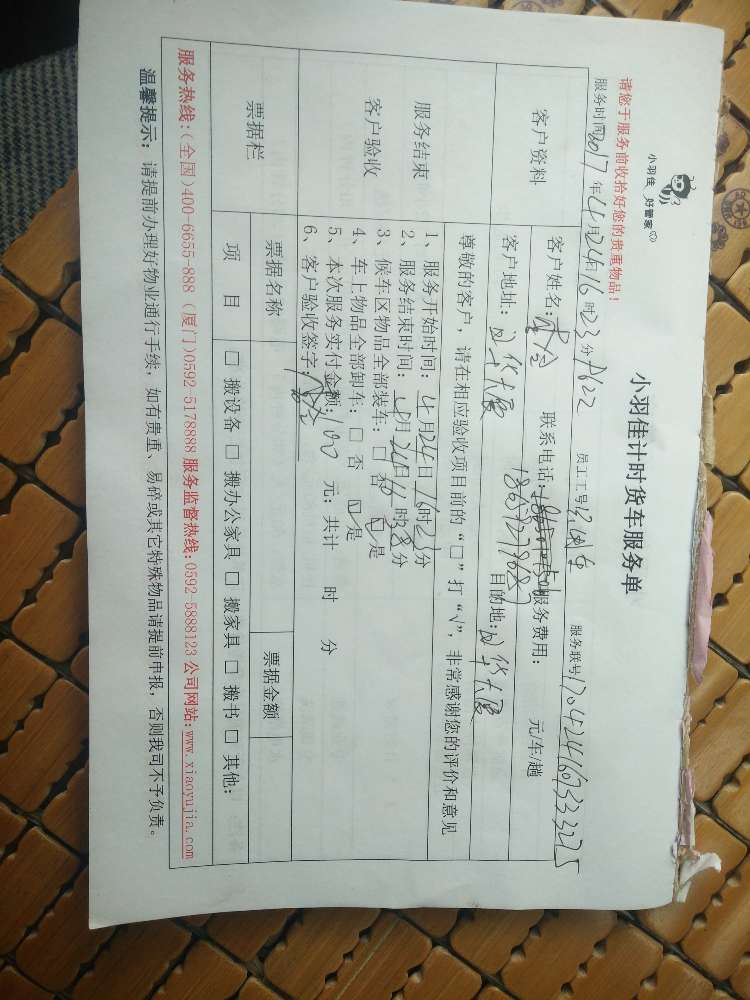 小羽佳 好管家
小羽佳计时货车服务单
请您于服务前收拾好您的贵重物品！
服务时间2017年4月24日16时23分 员工工号 服务联号
客户资料
客户姓名： 联系电话： 服务费用： 元/车/趟
18659279687
客户地址： 华大厦 目的地： 华大厦
服务结束
客户验收
尊敬的客户，请在相应验收项目前的“□”打“√”，非常感谢您的评价和意见
1、服务开始时间：4月24日16时23分
2、服务结束时间：4月24日 时38分
3、候车区物品全部装车：□ 否 ☑ 是
4、车上物品全部卸车：□ 否 ☑ 是
5、本次服务实付金额：100 元；共计 时 分
6、客户验收签字：
票据栏
票据名称 票据金额
项 目 □ 搬设备 □ 搬办公家具 □ 搬家具 □ 搬书 □ 其他：
服务热线：(全国)400-6655-888 (厦门)0592 5178888 服务监督热线：0592-5888123 公司网站：www.xiaoyujia.com
温馨提示：请提前办理好物业通行手续，如有贵重、易碎或其它特殊物品请提前申报，否则我司不予负责。